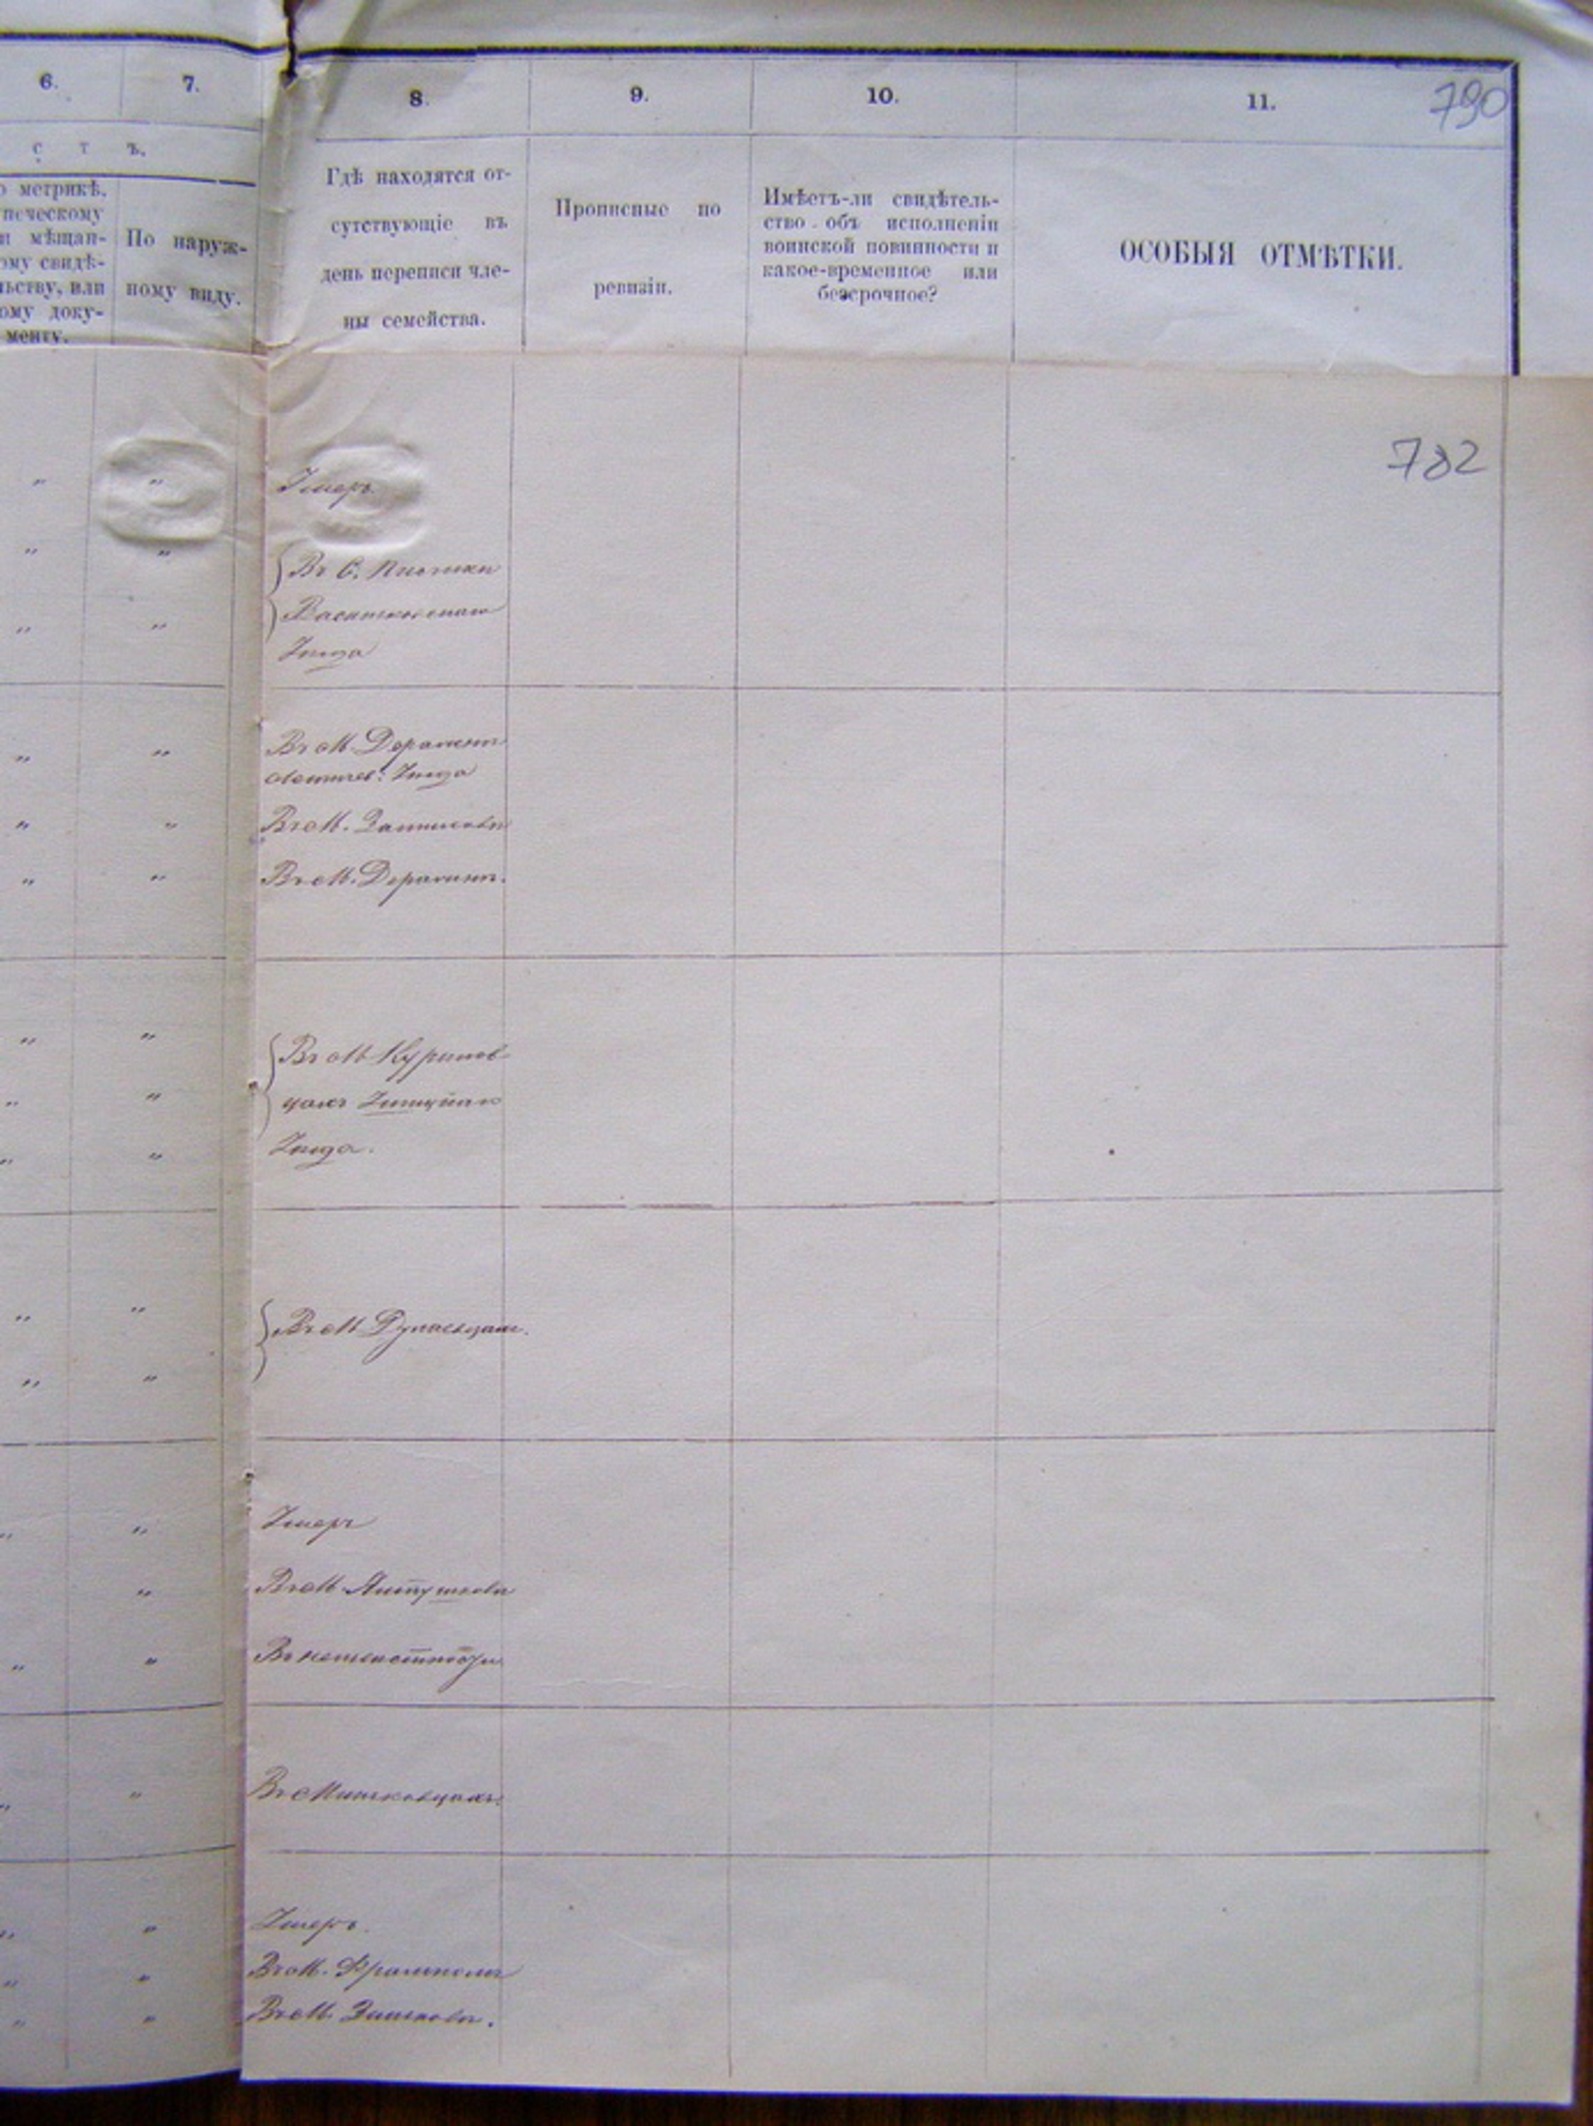 6. 7. 8. 9. 10. 11. 790
с т ъ.
о метрикѣ,
печескому
и мѣщан-
ому свидѣ-
льству, или
ому доку-
менту.
По наруж-
ному виду.
Гдѣ находятся от-
сутствующіе въ
день переписи чле-
ны семейства.
Прописные по
ревизіи.
Имѣетъ-ли свидѣтель-
ство объ исполненіи
воинской повинности и
какое-временное или
безсрочное?
ОСОБЫЯ ОТМѢТКИ.
782
Умеръ
Въ С.
Васильковскаго
Уѣзда
Въ М. Деражнѣ
Летичев: Уѣзда
Въ М.
Въ М. Деражнѣ.
Въ М Курилов-
цахъ Ушицкаго
Уѣзда.
Въ М Дунаевцахъ.
Умеръ
Въ М. Ялтушковѣ
Въ неизвѣстности
Въ Миньковцахъ.
Умеръ.
Въ М. Фрамполѣ
Въ М. Зиньковѣ.